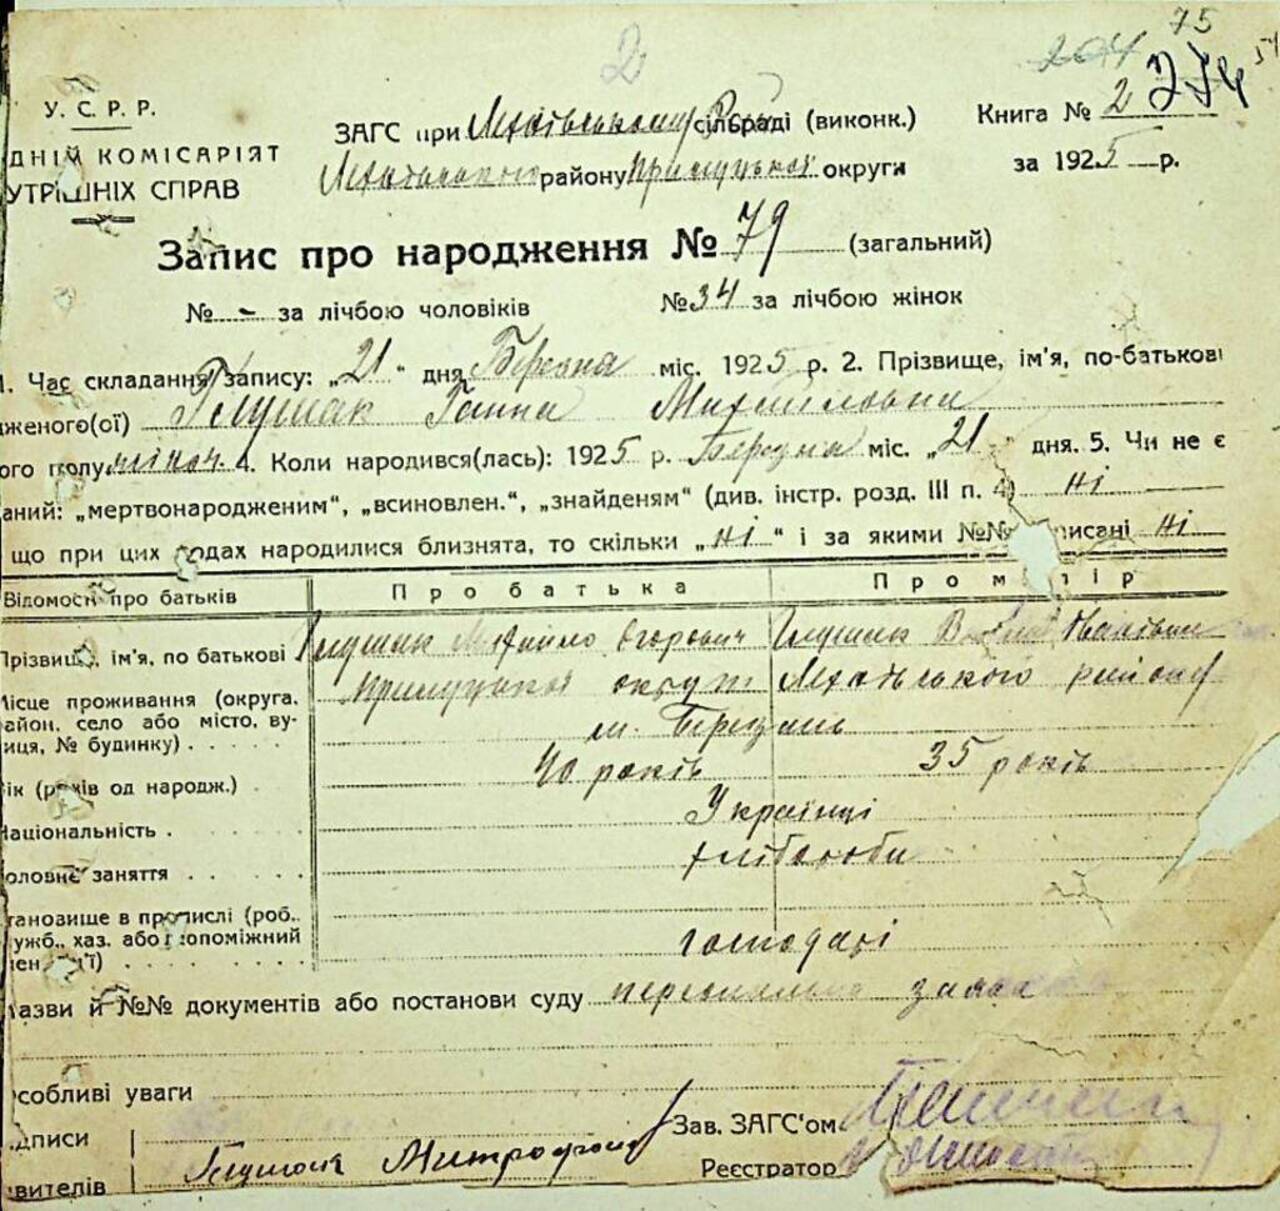 75
2
204
54
274
У. С. Р. Р.
ДНІЙ КОМІСАРІЯТ
УТРІШНІХ СПРАВ
ЗАГС при сільраді (виконк.)
району Прилуцької округи
Книга № 2
за 1925 р.
Запис про народження № 79 (загальний)
№ - за лічбою чоловіків № 34 за лічбою жінок
1. Час складання запису: „21“ дня Березня міс. 1925 р. 2. Прізвище, ім'я, по-батькові
дженого(ої) Глушак Ганна Михайловна
ого полу жіноч. 4. Коли народився(лась): 1925 р. Березня міс. „21“ дня. 5. Чи не є
аний: „мертвонародженим“, „всиновлен.“, „знайденям“ (див. інстр. розд. III п. 4) ні
що при цих родах народилися близнята, то скільки „ні“ і за якими №№ писані ні
Відомості про батьків Про батька Про матір
Прізвище, ім'я, по батькові Глушак Михайло Егорович Глушак
Місце проживання (округа, район, село або місто, ву-
лиця, № будинку) Прилуцької округи району
м. Березань
Вік (років од народж.) 40 років 35 років
Національність Українці
Головне заняття хлібороби
тановище в промислі (роб.,
ужб., хаз. або допоміжний
лен. сім'ї) господарі
Назви й №№ документів або постанови суду персональна заява
собливі уваги
дписи Зав. ЗАГС'ом
вителів Глушак Митрофан Реєстратор